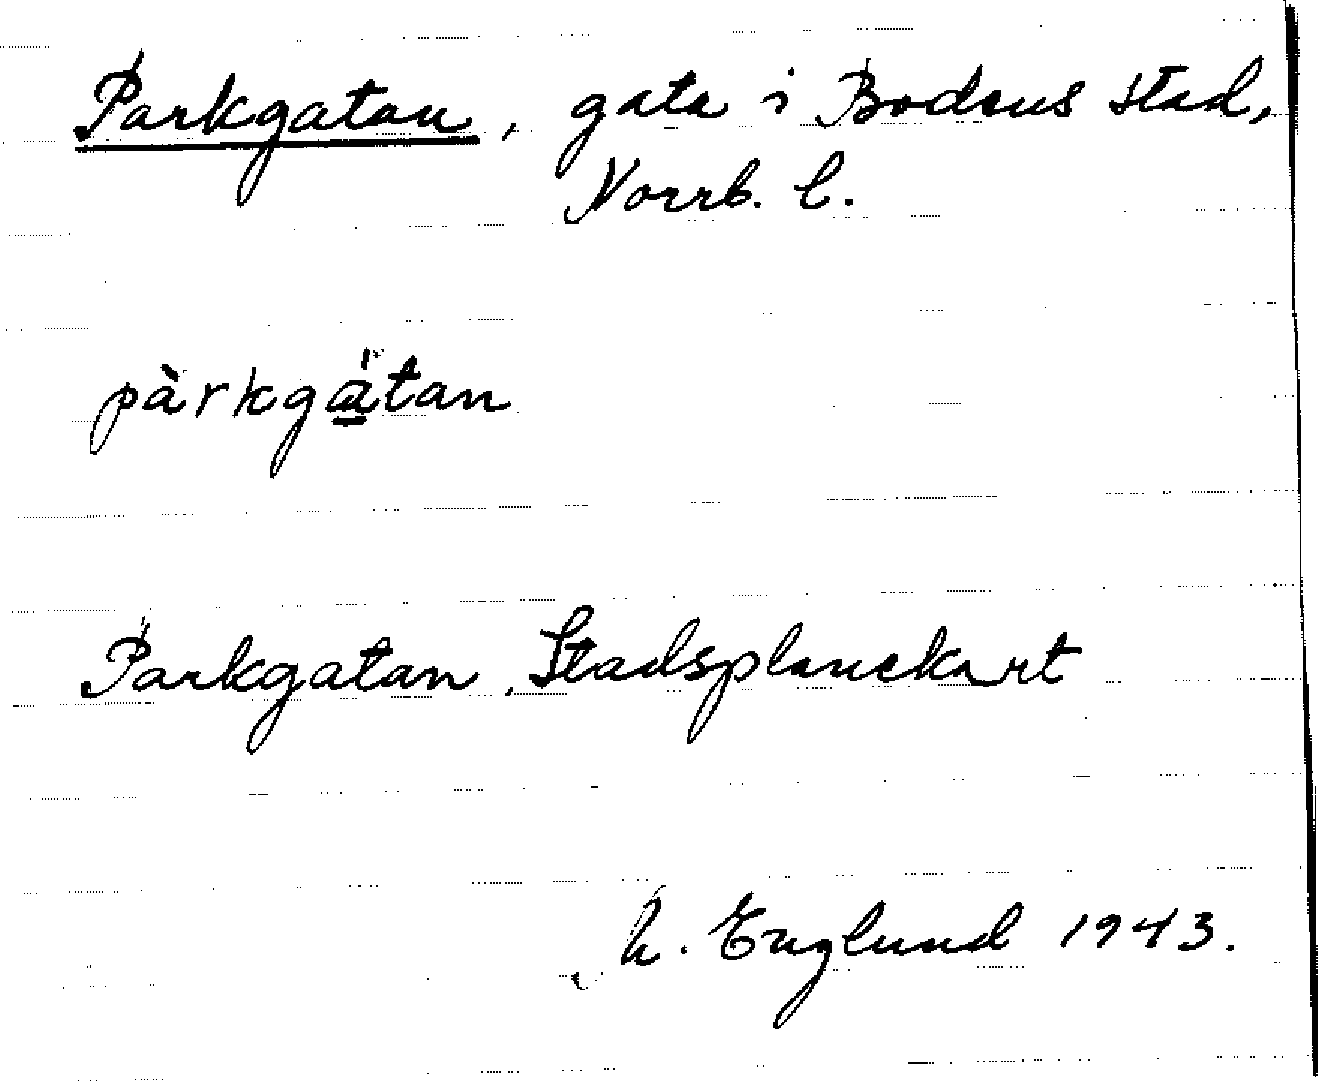 Parkgatan, gata i Bodens stad,
Norrb. l.
pàrkga̲̋tan
Parkgatan, Stadsplanekart
h. Englund 1943.